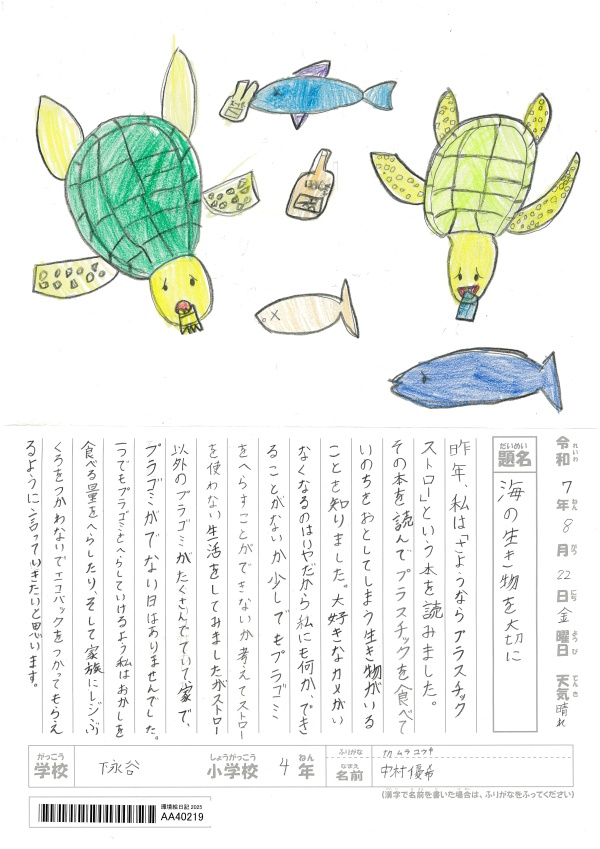 令和7年8月22日金曜日 天気晴れ
れいわ ねん がつ にち ようび てんき
だいめい
題名 海の生き物を大切に
昨年、私は「さようならプラスチック
ストロー」という本を読みました。
その本を読んでプラスチックを食べて
いのちをおとしてしまう生き物がいる
ことを知りました。大好きなカメがい
なくなるのはいやだから私にも何か、でき
ることがないか少しでもプラゴミ
をへらすことができないか考えてストロー
を使わない生活をしてみましたがストロー
以外のプラゴミがたくさんでていて、家で、
プラゴミがでない日はありませんでした。
一つでもプラゴミをへらしていけるよう私はおかしを
食べる量をへらしたり、そして家族にレジぶ
くろをつかわないでエコバックをつかってもらえ
るように言っていきたいと思います。
がっこう しょうがっこう ねん ふりがな ナカムラユウキ
学校 下永谷 小学校 4年
なまえ
名前 中村優希
(漢字で名前を書いた場合は、ふりがなをふってください)
環境絵日記 2025
AA40219